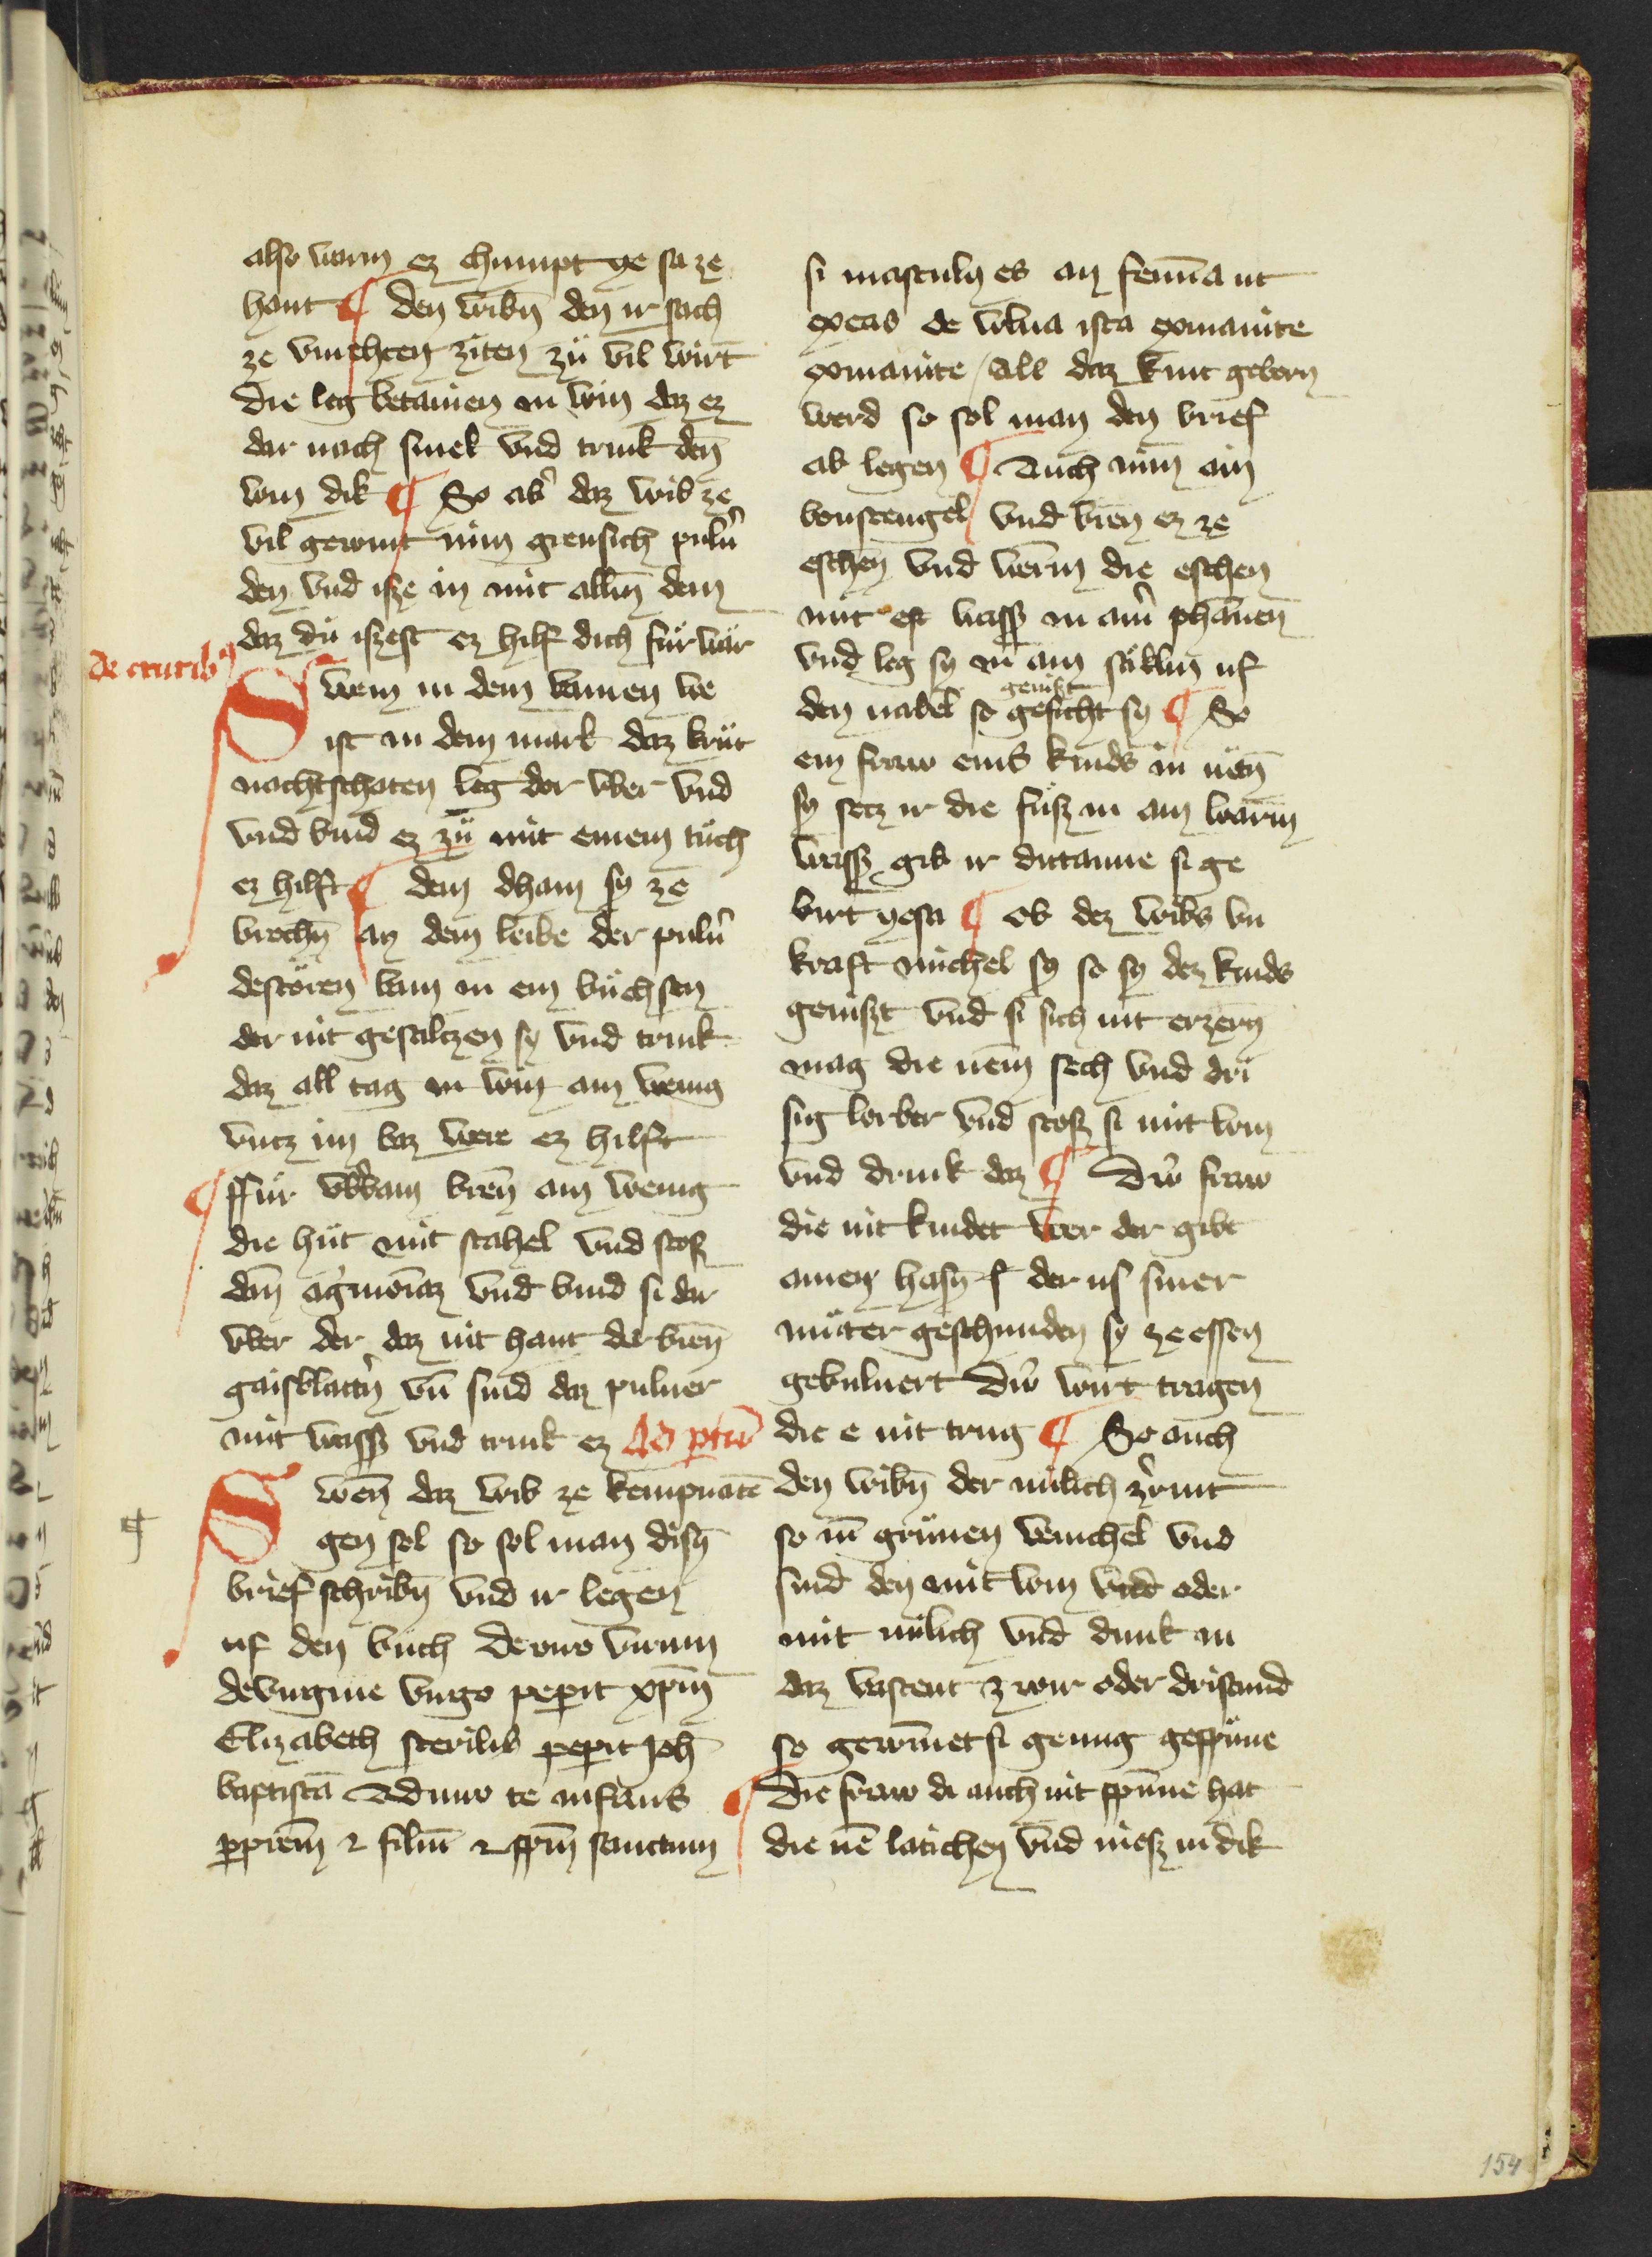 also warm ez chumpt ge sa ze
hant ¶ den wibn̄ den ir sach
ze vnrehten ziten zů vil wirt
die leg betanien in win daz ez
dar nach smek vnd trink den̄
win dik ¶ So ab̾ daz wib ze
vil gewint nim grensich pulu̾
den vnd isze in mit allm̄ dem
daz dü iszest ez hilf dich für war
de crurib9
Swem in dem bainen we
ist in dem mark daz krüt
nachtschaten leg dar vber vnd
vnd bind ez zů mit einem tůch
ez hilft ¶ dem dham sy ze
brochn̄ an dem leibe der pulu̾
destören bain in em büchsen
der nit gesaltzen sy vnd trink
daz all tag in win ain wenig
vntz im baz were ez hilft
¶ ffür vb̾bain bren̄ ain wenig
die hut mit stahel vnd stosz
dan̄ agmōiaz vnd bind si dar
vber der daz nit hant der bren̄
gaisblattn̾ vn̄ sind daz puluer
mit wassz vnd trink ez Ad ptū
Swen̄ daz wib ze kempnatē
gen sol so sol man disn̄
brief schribn̄ vnd ir legen
uf den buch De viro virum
de virgine virgo peperit xpm̄
Elizabeth sterilis peperit Joh̄
baptistā Adiuro te infans
p pr̄em̄ ⁊ filiū ⁊ sp̄m sanctum
si masculus es an femīa ut
exeas de wlua ista exinanite
exinanite / All daz kint geborn
werd so sol man den brief
ab legen ¶ Auch nim ain
bonstengel vnd bren̄ ez ze
eschen vnd werm die eschen
mit est wassz in ain̾ phannen
vnd leg sy in̄ ain säklin uf
genist
den nabel so gesicht sy ¶ So
ein fraw eins kinds in nen̄
sy setz ir die füsz in ain warm
wassz gib ir dittanne si ge
birt gesa ¶ ob dez wibs vn
kraft michel sy so sy dez kinds
geniszt vnd si sich nit erzern̄
mag die nem̄ sech vnd dri
sig lorber vnd stosz si mit win
vnd drink daz ¶ Div̾ fraw
die nit kindet wer der gibt
ainen hasn̄ f der us siner
müter geschunden sy ze essen
gebuluert div̾ wirt tragen
die e nit trug ¶ So auch
den wibn̄ der milich z̾rint
so nī grünen venichel vnd
sind den mit win vnd oder
mit milich vnd drink in
daz vastent zwir oder dristund
so gewīnet si genug gespüne
¶ Die fraw di auch nit spünne hat
die nē latichen vnd niesz in dik
154